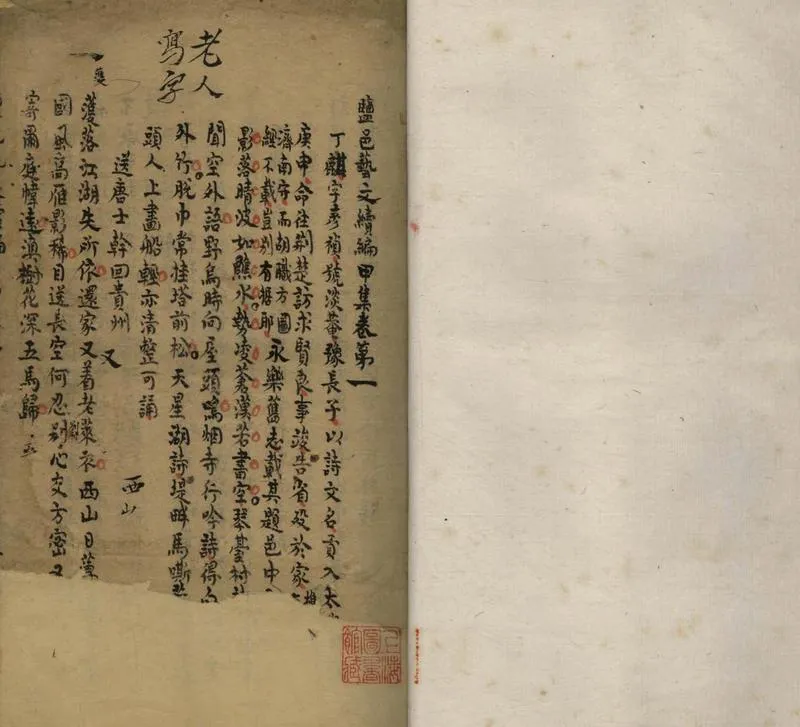 鹽邑藝文續編甲集卷第一
丁麒字彥禎號淡菴豫長子以詩文名貢入太
庚申命往荆楚訪求賢良事竣告省歿於家
濟南守而胡職方圖
經不載豈別有據耶
永樂舊志載其題邑中
影落晴波如蘸水勢凌蒼漢若書空琴臺
聞空外語野烏時向屋頭鳴烟寺行吟詩得
外竹脫巾常挂塔前松天星湖詩堤畔馬嘶
頭人上畫船輕亦清整可誦
老人
寫字
送唐士幹回貴州
又
西山
蒦落江湖失所依還家又着老萊衣西山日薄
國風高雁影稀目送長空何忍別心交方密又
寄圃庭幃遠滇樹花深五馬歸
上海
圖書
館藏